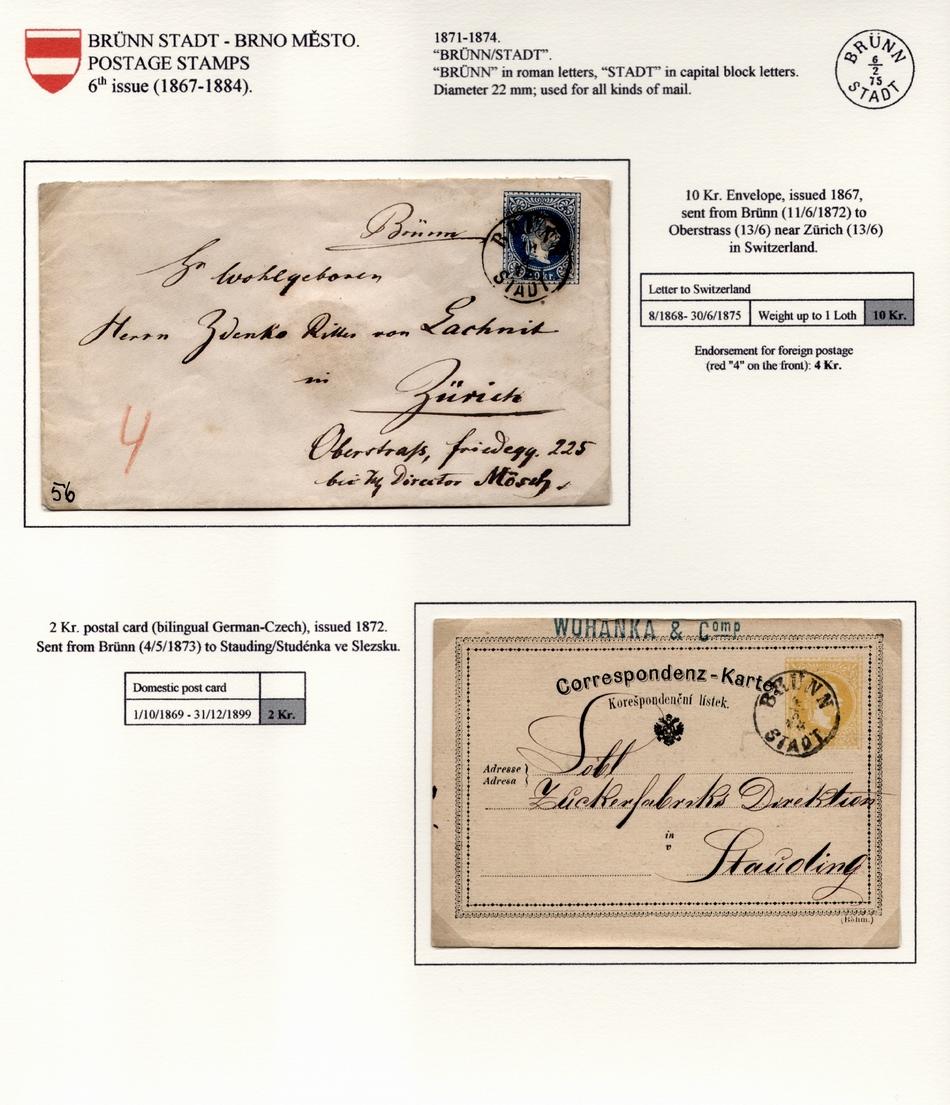 BRÜNN STADT - BRNO MĚSTO.
POSTAGE STAMPS
6th issue (1867-1884).
1871-1874.
“BRÜNN/STADT”.
“BRÜNN” in roman letters, “STADT” in capital block letters.
Diameter 22 mm; used for all kinds of mail.
BRÜNN
6
2
75
STADT
10 Kr. Envelope, issued 1867,
sent from Brünn (11/6/1872) to
Oberstrass (13/6) near Zürich (13/6)
in Switzerland.
Letter to Switzerland
8/1868- 30/6/1875 Weight up to 1 Loth 10 Kr.
Endorsement for foreign postage
(red "4" on the front): 4 Kr.
Brünn
BRÜNN
STADT
Wohlgeboren
Herrn Zdenko Ritter von Lachnit
in
Zürich
Oberstraß, friedegg. 225
bei Director Mösch
4
56
2 Kr. postal card (bilingual German-Czech), issued 1872.
Sent from Brünn (4/5/1873) to Stauding/Studénka ve Slezsku.
Domestic post card
1/10/1869 - 31/12/1899 2 Kr.
WOHANKA & Comp
Correspondenz-Karte
Korešpondenční lístek.
BRÜNN
STADT
Löbl
Adresse
Adresa
Zuckerfabriks Direktion
in
v
Stauding
(Böhm.)